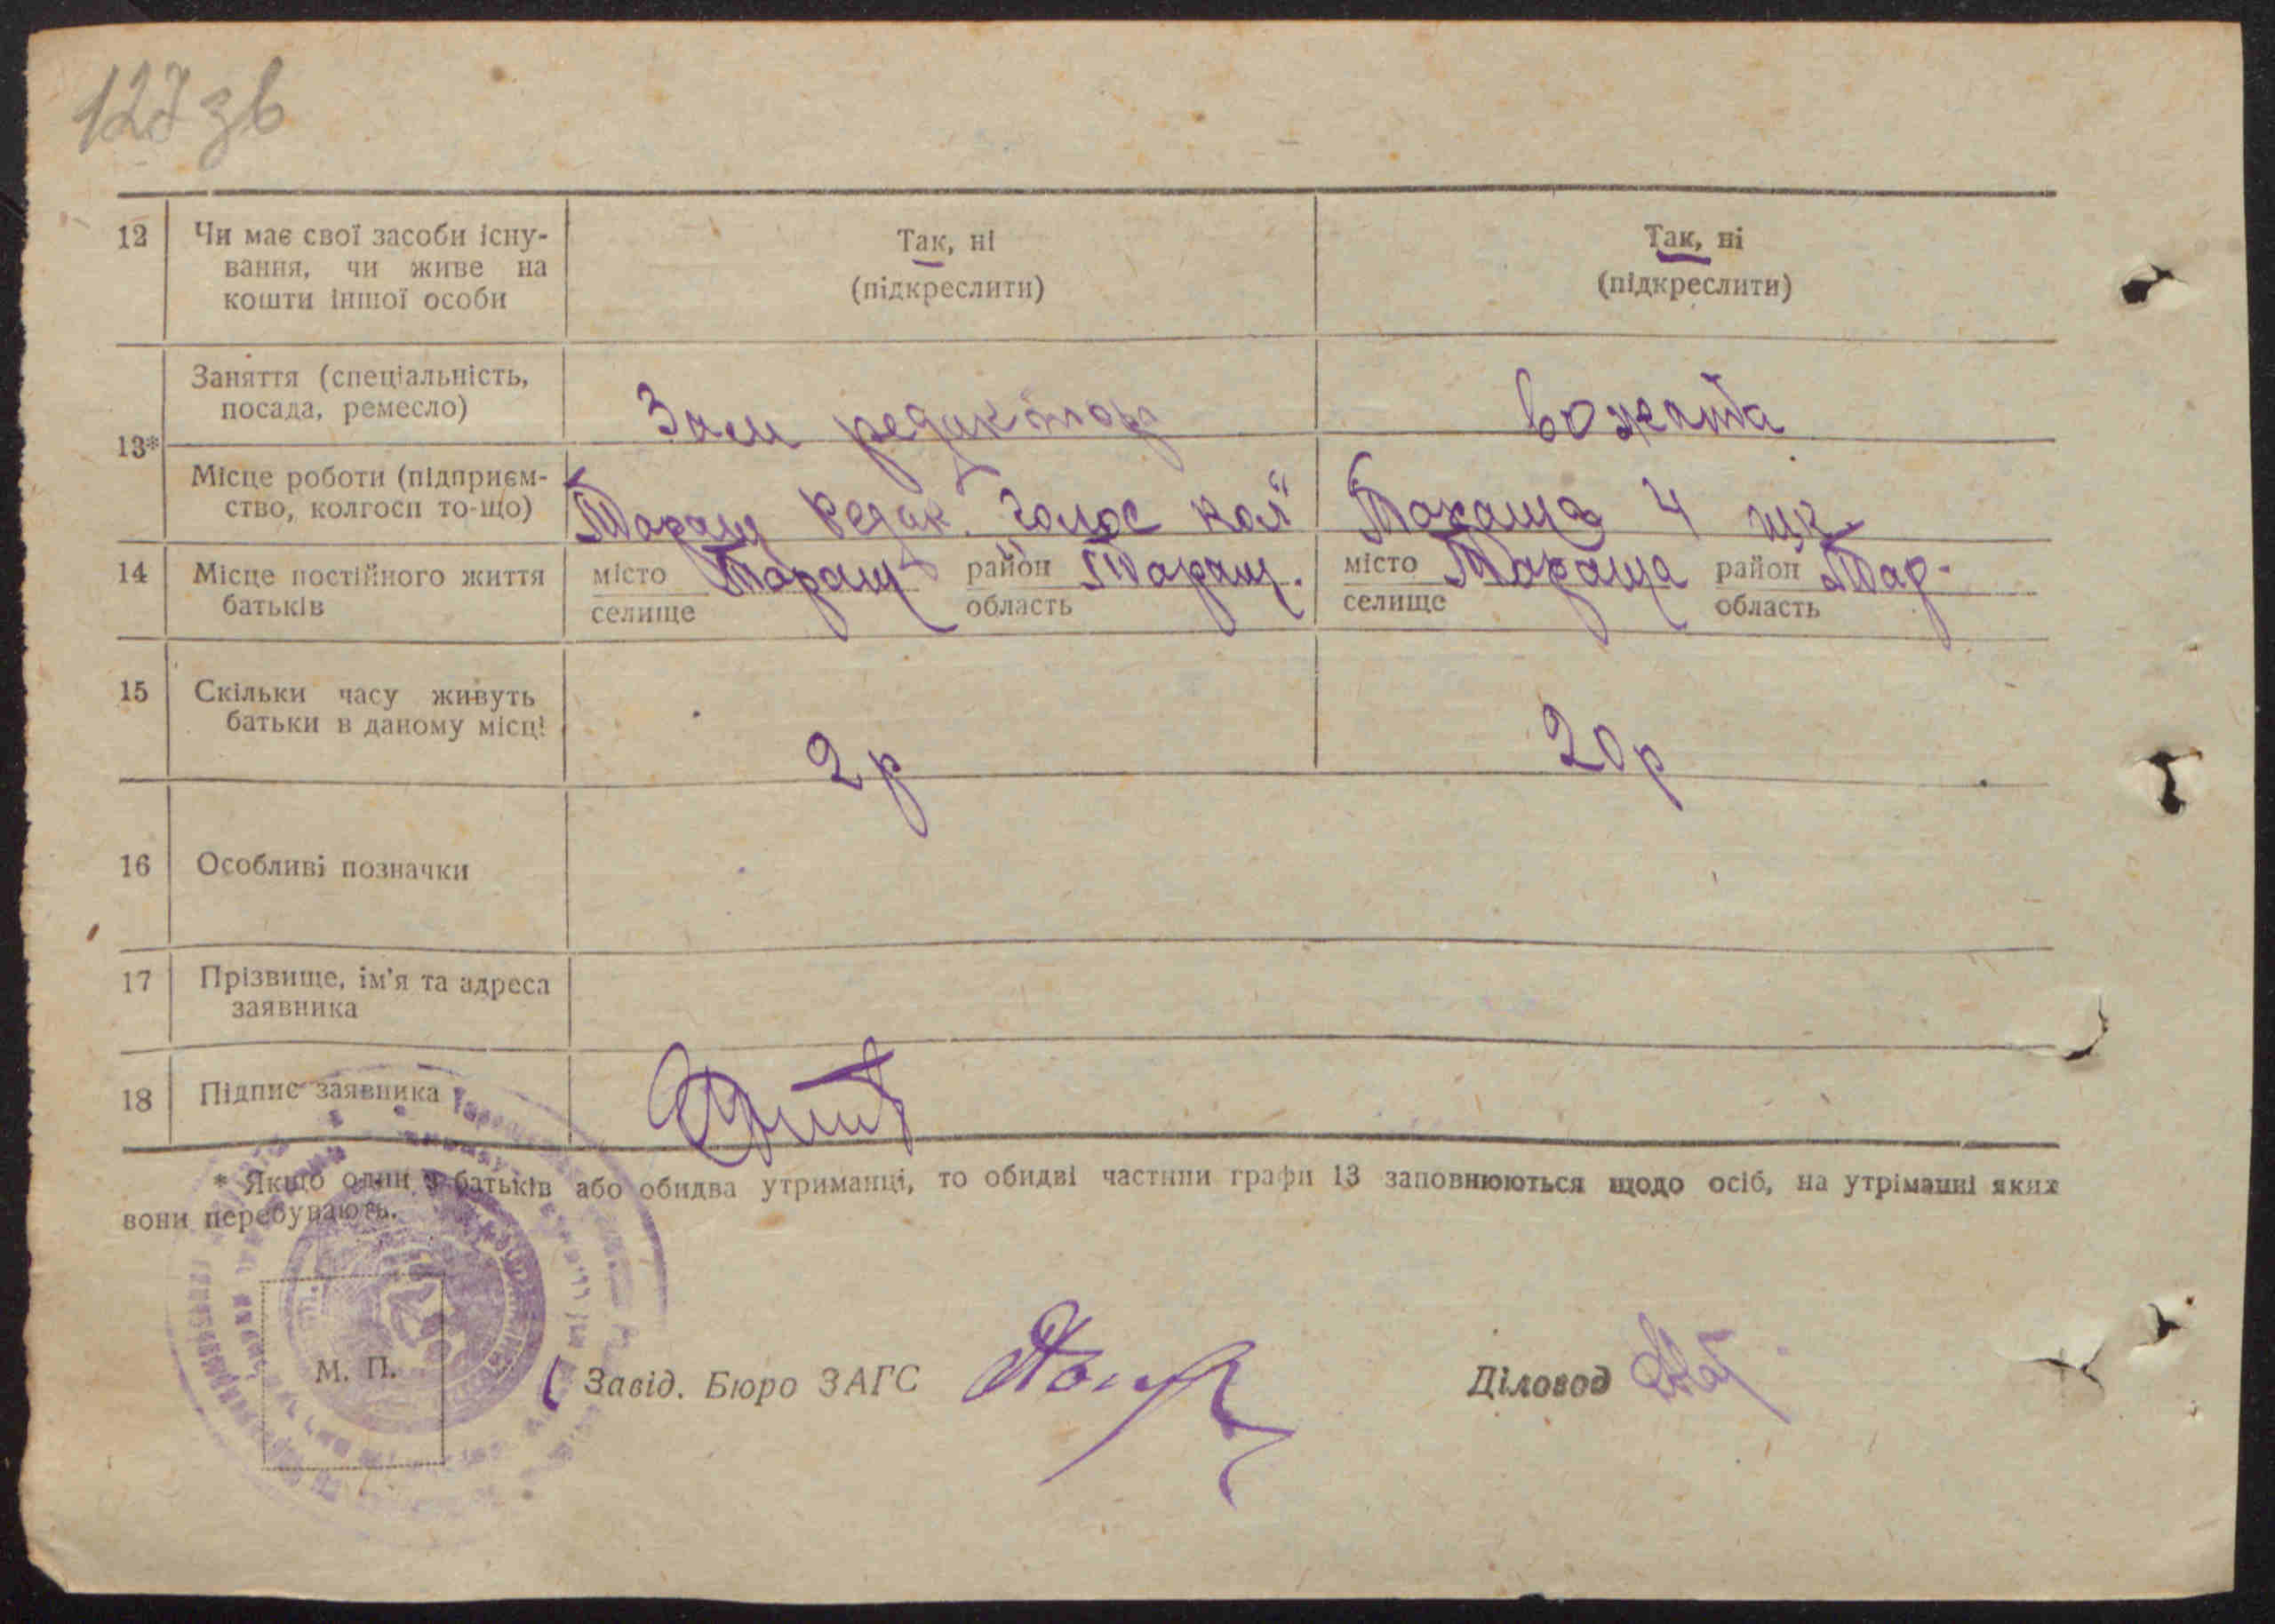 127 зв
12 Чи має свої засоби існу-
вання, чи живе на
кошти іншої особи
Так, ні
(підкреслити)
Так, ні
(підкреслити)
13*
Заняття (спеціальність,
посада, ремесло)
Зам редактора
вожата
Місце роботи (підприєм-
ство, колгосп то-що)
Таращ редак. "Голос кол"
Тараща 4 шк
14 Місце постійного життя
батьків
місто Таращ район Таращ.
селище область
місто Тараща район Тар.
селище область
15 Скільки часу живуть
батьки в даному місці
2 р
20 р
16 Особливі позначки
17 Прізвище, ім'я та адреса
заявника
18 Підпис заявника
* Якщо один з батьків або обидва утриманці, то обидві частини графи 13 заповнюються щодо осіб, на утріманні яких
вони перебувають.
М. П.
Завід. Бюро ЗАГС
Діловод